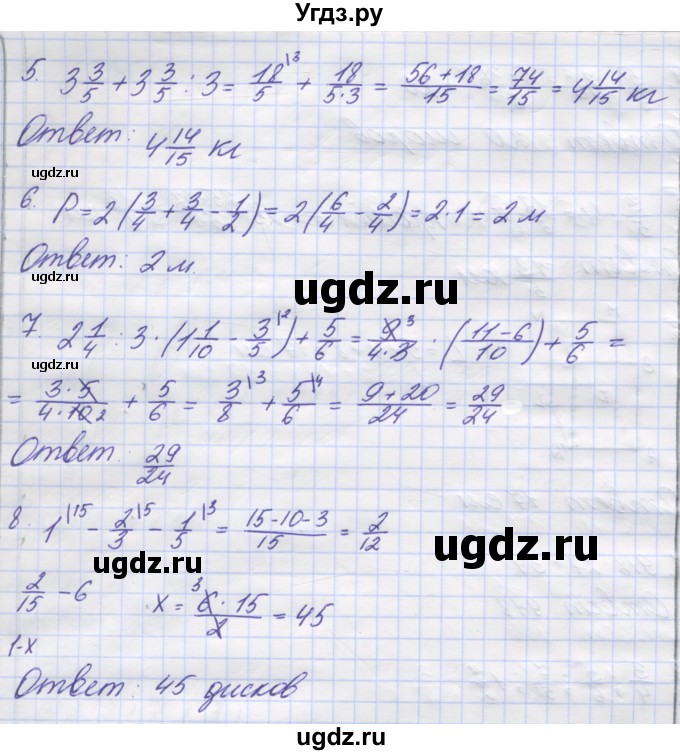 Угдз.ру
5. 3 3/5 + 3 3/5 : 3 = 18/5 |3 + 18/(5·3) = (56+18)/15 = 74/15 = 4 14/15 кг
Ответ: 4 14/15 кг
ugdz.ru
6. P = 2(3/4 + 3/4 - 1/2) = 2(6/4 - 2/4) = 2·1 = 2 м
ugdz.ru
Ответ: 2 м.
ugdz.ru
ugdz.ru
7. 2 1/4 : 3 · (1 1/10 - 3/5 |2) + 5/6 = 9 3/(4·3) · ((11-6)/10) + 5/6 =
= (3·5)/(4·10 2) + 5/6 = 3/8 |3 + 5/6 |4 = (9+20)/24 = 29/24
ugdz.ru
Ответ: 29/24
8. 1 |15 - 2/3 |5 - 1/5 |3 = (15-10-3)/15 = 2/12
ugdz.ru
ugdz.ru
2/15 - 6
x = (3 6·15)/2 = 45
ugdz.ru
1-x
Ответ: 45 дисков
ugdz.ru
ugdz.ru